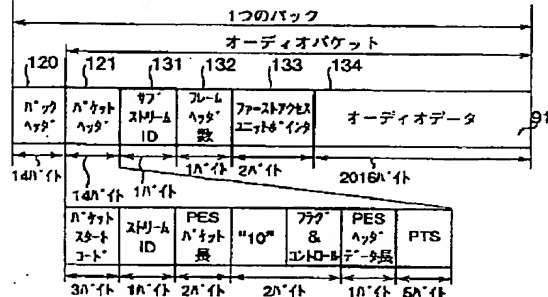 1つのパック
オーディオパケット
120 121 131 132 133 134
パック ヘッダ
パケット ヘッダ
サブ ストリーム ID
フレーム ヘッダ 数
ファーストアクセス ユニットポインタ
オーディオデータ
91
14バイト
14バイト
1バイト
1バイト
2バイト
2016バイト
パケット スタート コード
ストリーム ID
PES パケット 長
"10"
フラグ & コントロール
PES ヘッダ データ長
PTS
3バイト
1バイト
2バイト
2バイト
1バイト
5バイト